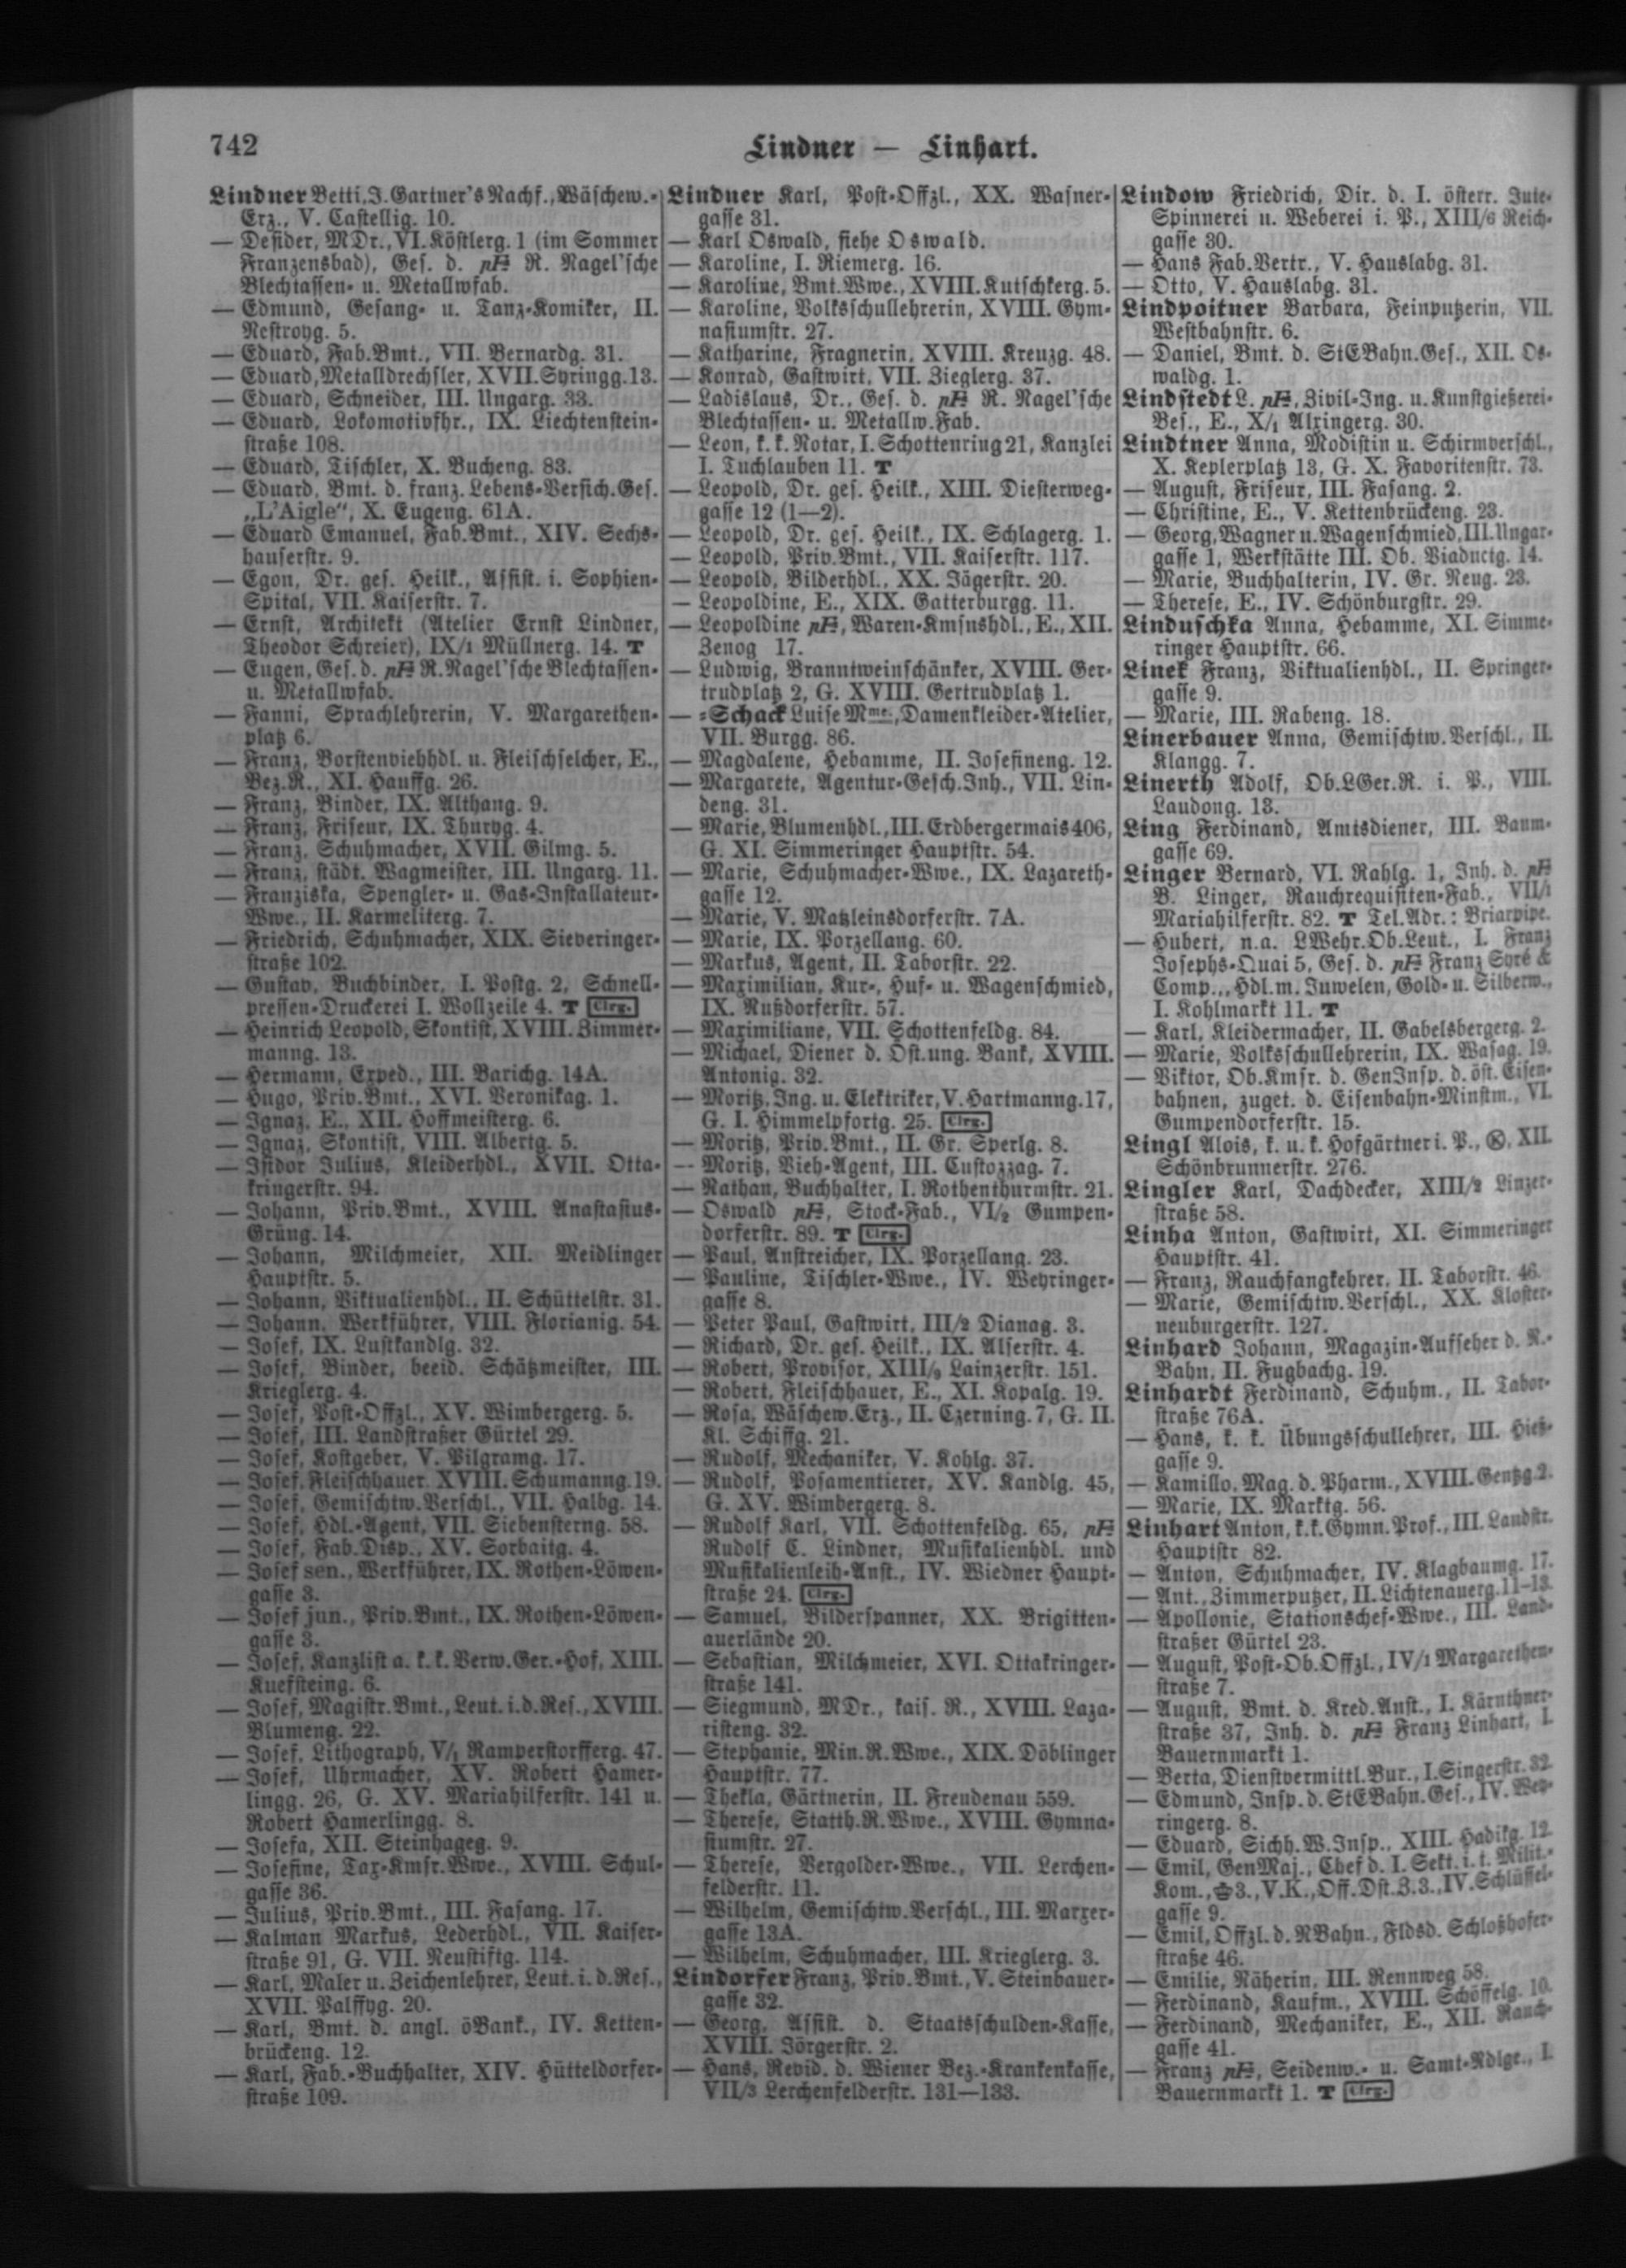 742
Lindner — Linhart.
Lindner Betti, J. Gartner's Nachf., Wäschew.-
Erz., V. Castellig. 10.
— Desider, MDr., VI. Köstlerg. 1 (im Sommer
Franzensbad), Ges. d. pF R. Nagel'sche
Blechtassen- u. Metallwfab.
— Edmund, Gesang- u. Tanz-Komiker, II.
Nestroyg. 5.
— Eduard, Fab.Bmt., VII. Bernardg. 31.
— Eduard, Metalldrechsler, XVII. Syringg. 13.
— Eduard, Schneider, III. Ungarg. 33.
— Eduard, Lokomotivfhr., IX. Liechtenstein-
straße 108.
— Eduard, Tischler, X. Bucheng. 83.
— Eduard, Bmt. d. franz. Lebens-Versich.Ges.
„L'Aigle“, X. Eugeng. 61A.
— Eduard Emanuel, Fab.Bmt., XIV. Sechs-
hauserstr. 9.
— Egon, Dr. ges. Heilk., Assist. i. Sophien-
Spital, VII. Kaiserstr. 7.
— Ernst, Architekt (Atelier Ernst Lindner,
Theodor Schreier), IX/1 Müllnerg. 14. T
— Eugen, Ges. d. pF R. Nagel'sche Blechtassen-
u. Metallwfab.
— Fanni, Sprachlehrerin, V. Margarethen-
platz 6.
— Franz, Borstenviehhdl. u. Fleischselcher, E.,
Bez.R., XI. Hauffg. 26.
— Franz, Binder, IX. Althang. 9.
— Franz, Friseur, IX. Thuryg. 4.
— Franz, Schuhmacher, XVII. Gilmg. 5.
— Franz, städt. Wagmeister, III. Ungarg. 11.
— Franziska, Spengler- u. Gas-Installateur-
Wwe., II. Karmeliterg. 7.
— Friedrich, Schuhmacher, XIX. Sieveringer-
straße 102.
— Gustav, Buchbinder, I. Postg. 2, Schnell-
pressen-Druckerei I. Wollzeile 4. T Clrg.
— Heinrich Leopold, Skontist, XVIII. Zimmer-
manng. 13.
— Hermann, Exped., III. Barichg. 14A.
— Hugo, Priv.Bmt., XVI. Veronikag. 1.
— Ignaz, E., XII. Hoffmeisterg. 6.
— Ignaz, Skontist, VIII. Albertg. 5.
— Isidor Julius, Kleiderhdl., XVII. Otta-
kringerstr. 94.
— Johann, Priv.Bmt., XVIII. Anastasius-
Grüng. 14.
— Johann, Milchmeier, XII. Meidlinger
Hauptstr. 5.
— Johann, Viktualienhdl., II. Schüttelstr. 31.
— Johann, Werkführer, VIII. Florianig. 54.
— Josef, IX. Lustkandlg. 32.
— Josef, Binder, beeid. Schätzmeister, III.
Krieglerg. 4.
— Josef, Post-Offzl., XV. Wimbergerg. 5.
— Josef, III. Landstraßer Gürtel 29.
— Josef, Kostgeber, V. Pilgramg. 17.
— Josef, Fleischhauer, XVIII. Schumanng. 19.
— Josef, Gemischtw.Verschl., VII. Halbg. 14.
— Josef, Hdl.-Agent, VII. Siebensterng. 58.
— Josef, Fab.Disp., XV. Sorbaitg. 4.
— Josef sen., Werkführer, IX. Rothen-Löwen-
gasse 3.
— Josef jun., Priv.Bmt., IX. Rothen-Löwen-
gasse 3.
— Josef, Kanzlist a. k. k. Verw.Ger.-Hof, XIII.
Kuefsteing. 6.
— Josef, Magistr.Bmt., Leut. i. d. Res., XVIII.
Blumeng. 22.
— Josef, Lithograph, V/1 Ramperstorfferg. 47.
— Josef, Uhrmacher, XV. Robert Hamer-
lingg. 26, G. XV. Mariahilferstr. 141 u.
Robert Hamerlingg. 8.
— Josefa, XII. Steinhageg. 9.
— Josefine, Tax-Kmsr.Wwe., XVIII. Schul-
gasse 36.
— Julius, Priv.Bmt., III. Fasang. 17.
— Kalman Markus, Lederhdl., VII. Kaiser-
straße 91, G. VII. Neustiftg. 114.
— Karl, Maler u. Zeichenlehrer, Leut. i. d. Res.,
XVII. Palffyg. 20.
— Karl, Bmt. d. angl. öBank., IV. Ketten-
brückeng. 12.
— Karl, Fab.-Buchhalter, XIV. Hütteldorfer-
straße 109.
Lindner Karl, Post-Offzl., XX. Wasner-
gasse 31.
— Karl Oswald, siehe Oswald.
— Karoline, I. Riemerg. 16.
— Karoline, Bmt.Wwe., XVIII. Kutschkerg. 5.
— Karoline, Volksschullehrerin, XVIII. Gym-
nasiumstr. 27.
— Katharine, Fragnerin, XVIII. Kreuzg. 48.
— Konrad, Gastwirt, VII. Zieglerg. 37.
— Ladislaus, Dr., Ges. d. pF R. Nagel'sche
Blechtassen- u. Metallw.Fab.
— Leon, k. k. Notar, I. Schottenring 21, Kanzlei
I. Tuchlauben 11. T
— Leopold, Dr. ges. Heilk., XIII. Diesterweg-
gasse 12 (1—2).
— Leopold, Dr. ges. Heilk., IX. Schlagerg. 1.
— Leopold, Priv.Bmt., VII. Kaiserstr. 117.
— Leopold, Bilderhdl., XX. Jägerstr. 20.
— Leopoldine, E., XIX. Gatterburgg. 11.
— Leopoldine pF, Waren-Kmsnshdl., E., XII.
Zenog 17.
— Ludwig, Branntweinschänker, XVIII. Ger-
trudplatz 2, G. XVIII. Gertrudplatz 1.
— -Schack Luise Mme., Damenkleider-Atelier,
VII. Burgg. 86.
— Magdalene, Hebamme, II. Josefineng. 12.
— Margarete, Agentur-Gesch.Inh., VII. Lin-
deng. 31.
— Marie, Blumenhdl., III. Erdbergermais 406,
G. XI. Simmeringer Hauptstr. 54.
— Marie, Schuhmacher-Wwe., IX. Lazareth-
gasse 12.
— Marie, V. Matzleinsdorferstr. 7A.
— Marie, IX. Porzellang. 60.
— Markus, Agent, II. Taborstr. 22.
— Maximilian, Kur-, Huf- u. Wagenschmied,
IX. Nußdorferstr. 57.
— Maximiliane, VII. Schottenfeldg. 84.
— Michael, Diener d. Öst.ung. Bank, XVIII.
Antonig. 32.
— Moritz, Ing. u. Elektriker, V. Hartmanng. 17,
G. I. Himmelpfortg. 25. Clrg.
— Moritz, Priv.Bmt., II. Gr. Sperlg. 8.
— Moritz, Vieh-Agent, III. Custozzag. 7.
— Nathan, Buchhalter, I. Rothenthurmstr. 21.
— Oswald pF, Stock-Fab., VI/2 Gumpen-
dorferstr. 89. T Clrg.
— Paul, Anstreicher, IX. Porzellang. 23.
— Pauline, Tischler-Wwe., IV. Weyringer-
gasse 8.
— Peter Paul, Gastwirt, III/2 Dianag. 3.
— Richard, Dr. ges. Heilk., IX. Alserstr. 4.
— Robert, Provisor, XIII/9 Lainzerstr. 151.
— Robert, Fleischhauer, E., XI. Kopalg. 19.
— Rosa, Wäschew.Erz., II. Czerning. 7, G. II.
Kl. Schiffg. 21.
— Rudolf, Mechaniker, V. Kohlg. 37.
— Rudolf, Posamentierer, XV. Kandlg. 45,
G. XV. Wimbergerg. 8.
— Rudolf Karl, VII. Schottenfeldg. 65, pF
Rudolf C. Lindner, Musikalienhdl. und
Musikalienleih-Anst., IV. Wiedner Haupt-
straße 24. Clrg.
— Samuel, Bilderspanner, XX. Brigitten-
auerlände 20.
— Sebastian, Milchmeier, XVI. Ottakringer-
straße 141.
— Siegmund, MDr., kais. R., XVIII. Laza-
risteng. 32.
— Stephanie, Min.R.Wwe., XIX. Döblinger
Hauptstr. 77.
— Thekla, Gärtnerin, II. Freudenau 559.
— Therese, Statth.R.Wwe., XVIII. Gymna-
siumstr. 27.
— Therese, Vergolder-Wwe., VII. Lerchen-
felderstr. 11.
— Wilhelm, Gemischtw.Verschl., III. Marxer-
gasse 13A.
— Wilhelm, Schuhmacher, III. Krieglerg. 3.
Lindorfer Franz, Priv.Bmt., V. Steinbauer-
gasse 32.
— Georg, Assist. d. Staatsschulden-Kasse,
XVIII. Jörgerstr. 2.
— Hans, Revid. d. Wiener Bez.-Krankenkasse,
VII/3 Lerchenfelderstr. 131—133.
Lindow Friedrich, Dir. d. I. österr. Jute-
Spinnerei u. Weberei i. P., XIII/6 Reich-
gasse 30.
— Hans Fab.Vertr., V. Hauslabg. 31.
— Otto, V. Hauslabg. 31.
Lindpoitner Barbara, Feinputzerin, VII.
Westbahnstr. 6.
— Daniel, Bmt. d. StEBahn.Ges., XII. Os-
waldg. 1.
Lindstedt L. pF, Zivil-Ing. u. Kunstgießerei-
Bes., E., X/1 Alxingerg. 30.
Lindtner Anna, Modistin u. Schirmverschl.,
X. Keplerplatz 13, G. X. Favoritenstr. 73.
— August, Friseur, III. Fasang. 2.
— Christine, E., V. Kettenbrückeng. 23.
— Georg, Wagner u. Wagenschmied, III. Ungar-
gasse 1, Werkstätte III. Ob. Viaductg. 14.
— Marie, Buchhalterin, IV. Gr. Neug. 23.
— Therese, E., IV. Schönburgstr. 29.
Linduschka Anna, Hebamme, XI. Simme-
ringer Hauptstr. 66.
Linek Franz, Viktualienhdl., II. Springer-
gasse 9.
— Marie, III. Rabeng. 18.
Linerbauer Anna, Gemischtw.Verschl., II.
Klangg. 7.
Linerth Adolf, Ob.LGer.R. i. P., VIII.
Laudong. 13.
Ling Ferdinand, Amtsdiener, III. Baum-
gasse 69.
Linger Bernard, VI. Rahlg. 1, Inh. d. pF
B. Linger, Rauchrequisiten-Fab., VII/1
Mariahilferstr. 82. T Tel.Adr.: Briarpipe.
— Hubert, n.a. LWehr.Ob.Leut., I. Franz
Josephs-Quai 5, Ges. d. pF Franz Syré &
Comp., Hdl. m. Juwelen, Gold- u. Silberw.,
I. Kohlmarkt 11. T
— Karl, Kleidermacher, II. Gabelsbergerg. 2.
— Marie, Volksschullehrerin, IX. Wasag. 19.
— Viktor, Ob.Kmsr. d. GenInsp. d. öst. Eisen-
bahnen, zuget. d. Eisenbahn-Minstm., VI.
Gumpendorferstr. 15.
Lingl Alois, k. u. k. Hofgärtner i. P., Ⓚ, XII.
Schönbrunnerstr. 276.
Lingler Karl, Dachdecker, XIII/2 Linzer-
straße 58.
Linha Anton, Gastwirt, XI. Simmeringer
Hauptstr. 41.
— Franz, Rauchfangkehrer, II. Taborstr. 46.
— Marie, Gemischtw.Verschl., XX. Kloster-
neuburgerstr. 127.
Linhard Johann, Magazin-Aufseher d. N.-
Bahn, II. Fugbachg. 19.
Linhardt Ferdinand, Schuhm., II. Tabor-
straße 76A.
— Hans, k. k. Übungsschullehrer, III. Hieß-
gasse 9.
— Kamillo, Mag. d. Pharm., XVIII. Gentzg. 2.
— Marie, IX. Marktg. 56.
Linhart Anton, k.k. Gymn. Prof., III. Landstr.
Hauptstr 82.
— Anton, Schuhmacher, IV. Klagbaumg. 17.
— Ant., Zimmerputzer, II. Lichtenauerg. 11–13.
— Apollonie, Stationschef-Wwe., III. Land-
straßer Gürtel 23.
— August, Post-Ob.Offzl., IV/1 Margarethen-
straße 7.
— August, Bmt. d. Kred.Anst., I. Kärnthner-
straße 37, Inh. d. pF Franz Linhart, I.
Bauernmarkt 1.
— Berta, Dienstvermittl.Bur., I. Singerstr. 32.
— Edmund, Insp. d. StEBahn.Ges., IV. Wey-
ringerg. 8.
— Eduard, Sichh.W.Insp., XIII. Hadikg. 12.
— Emil, GenMaj., Chef d. I. Sekt. i. t. Milit.-
Kom., 3., V.K., Off.Dst.Z.3., IV. Schlüssel-
gasse 9.
— Emil, Offzl. d. NBahn., Fldsd. Schloßhofer-
straße 46.
— Emilie, Näherin, III. Rennweg 58.
— Ferdinand, Kaufm., XVIII. Schöffelg. 10.
— Ferdinand, Mechaniker, E., XII. Rauch-
gasse 41.
— Franz pF, Seidenw.- u. Samt-Ndlge., I.
Bauernmarkt 1. T Clrg.